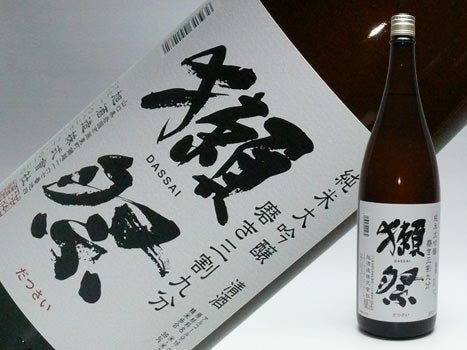 獺祭
DASSAI
だっさい
純米大吟醸
磨き三割九分
清酒
旭酒造株式會社
獺祭
DASSAI
純米大吟醸
磨き三割九分
旭酒造株式會社
だっさい